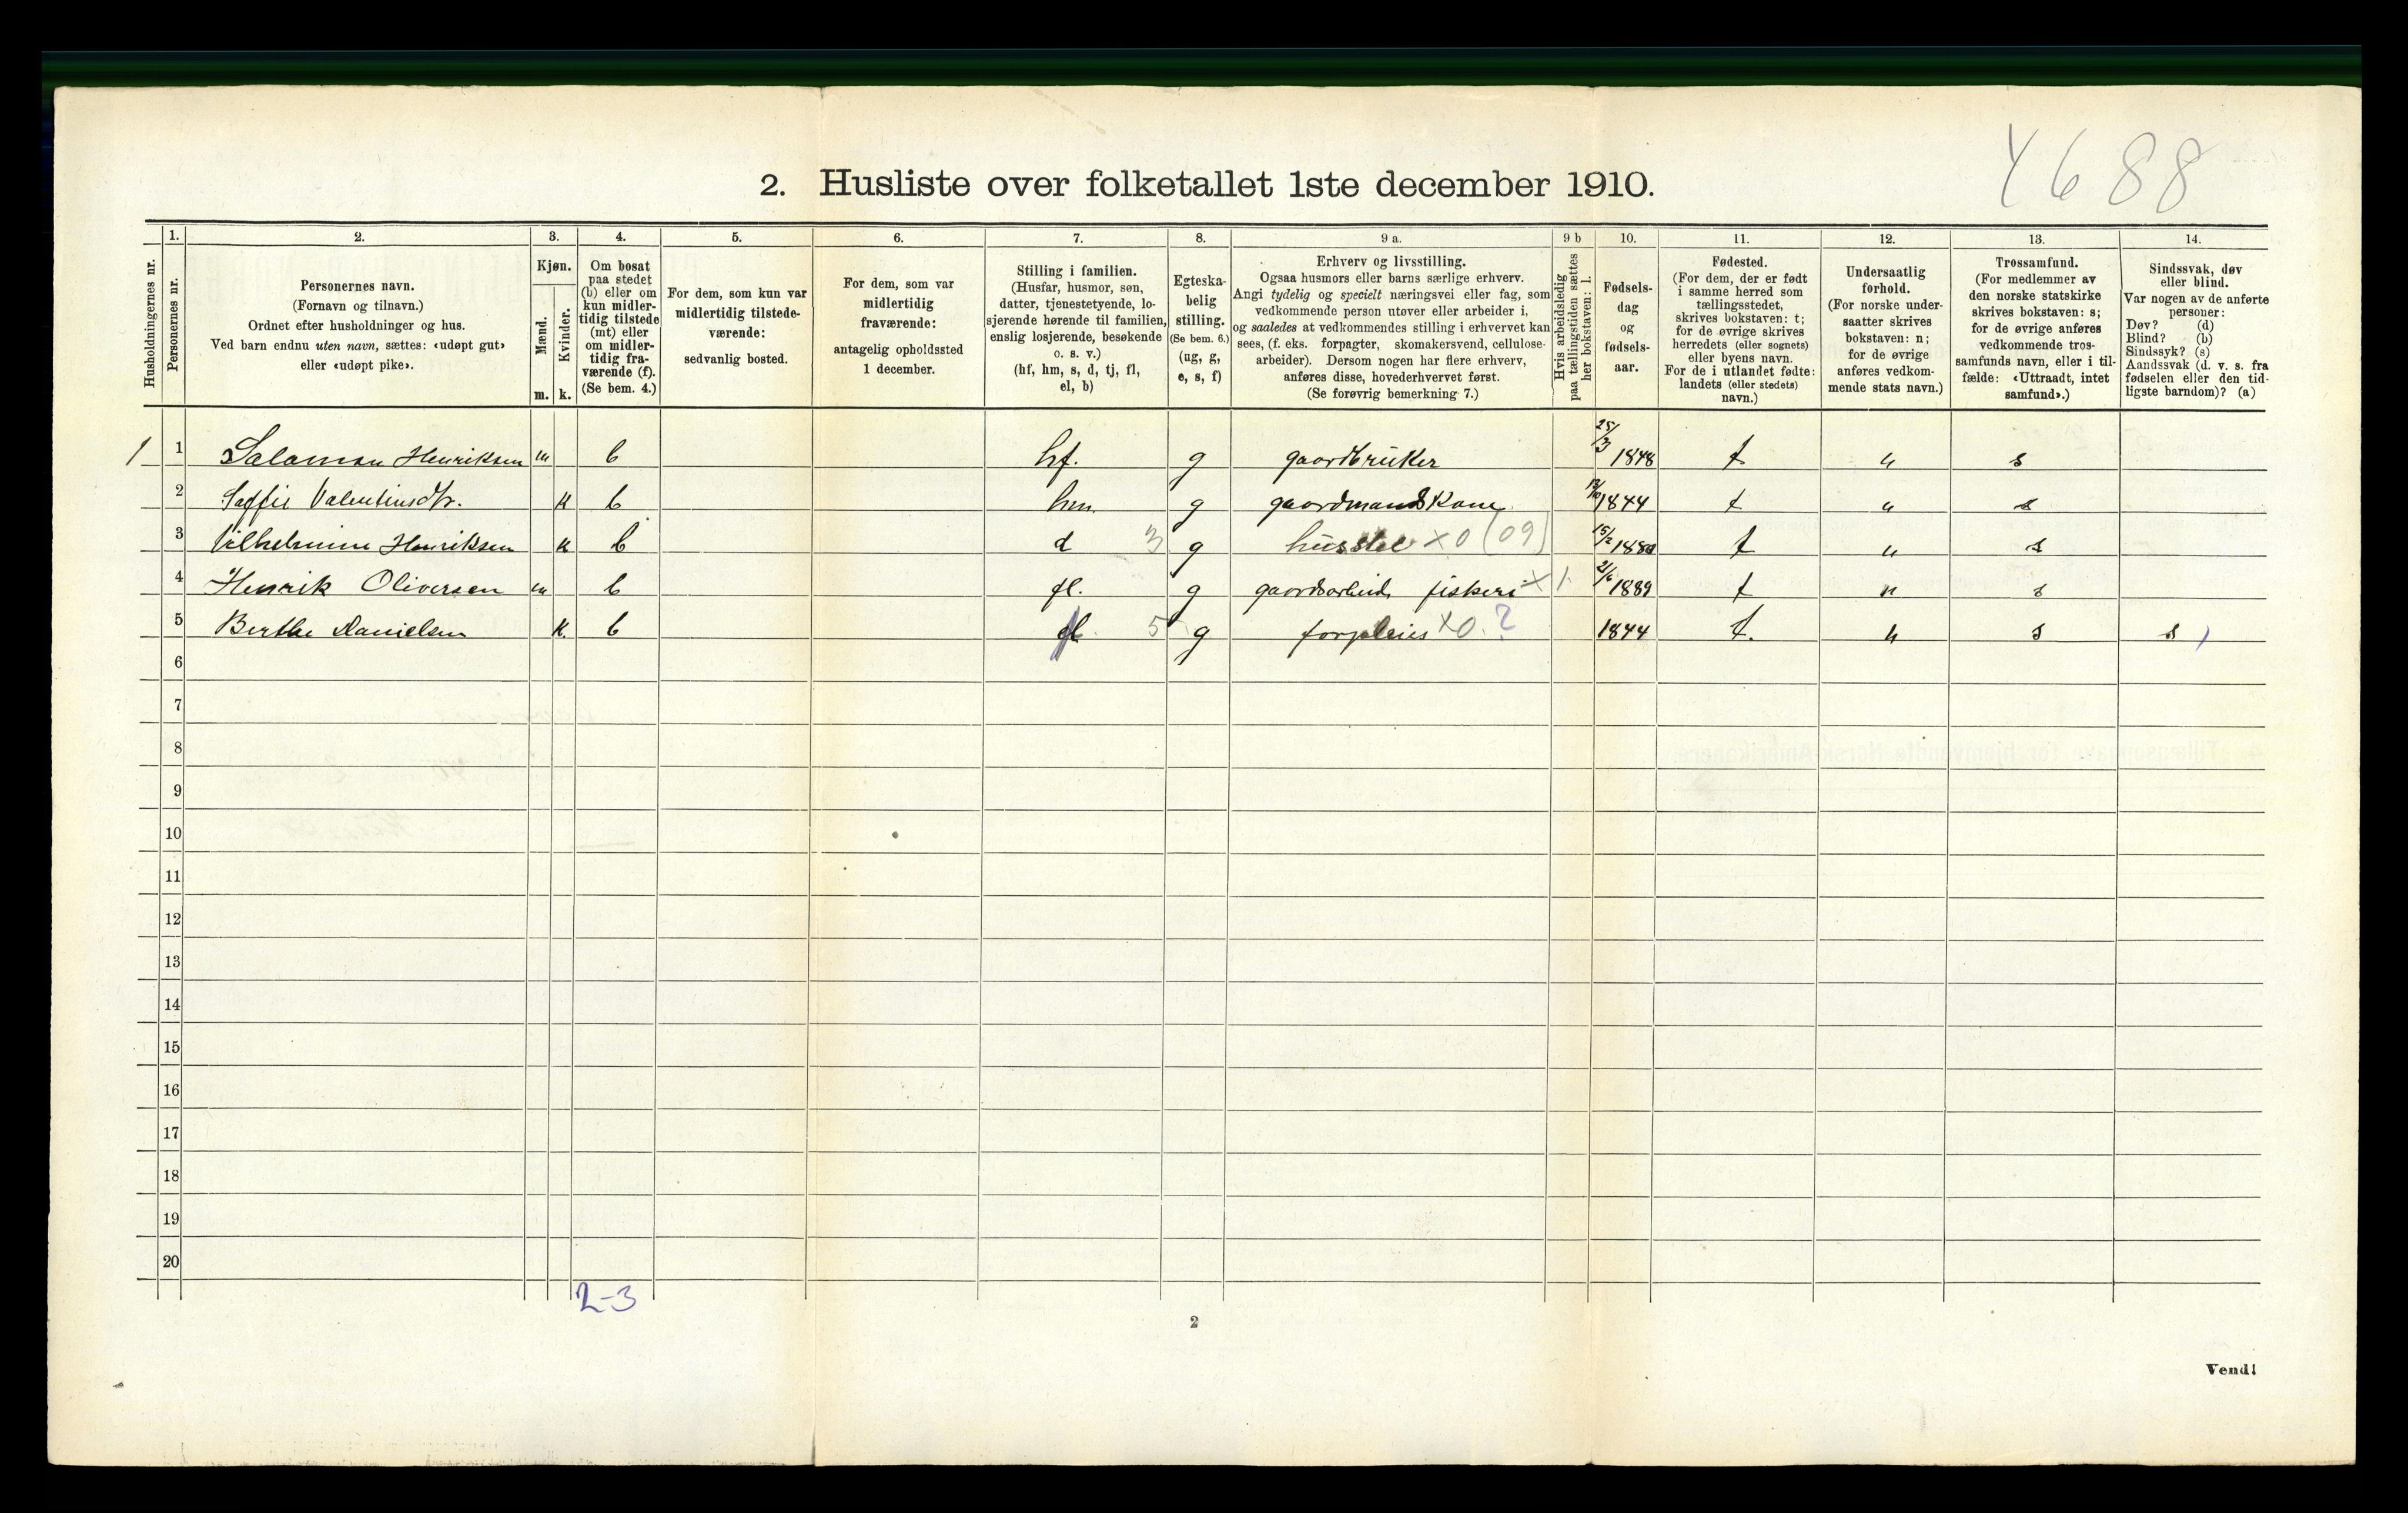 4688
2. Husliste over folketallet 1ste december 1910.
1. 2. 3. 4. 5. 6. 7. 8. 9 a. 9 b 10. 11. 12. 13. 14.
Husholdningernes nr.
Personernes nr.
Personernes navn.
(Fornavn og tilnavn.)
Ordnet efter husholdninger og hus.
Ved barn endnu uten navn, sættes: «udøpt gut»
eller «udøpt pike».
Kjøn.
Mænd.
Kvinder.
m. k.
Om bosat
paa stedet
(b) eller om
kun midler-
tidig tilstede
(mt) eller
om midler-
tidig fra-
værende (f).
(Se bem. 4.)
For dem, som kun var
midlertidig tilstede-
værende:
sedvanlig bosted.
For dem, som var
midlertidig
fraværende:
antagelig opholdssted
1 december.
Stilling i familien.
(Husfar, husmor, søn,
datter, tjenestetyende, lo-
sjerende hørende til familien,
enslig losjerende, besøkende
o. s. v.)
(hf, hm, s, d, tj, fl,
el, b)
Egteska-
belig
stilling.
(Se bem. 6.)
(ug, g,
e, s, f)
Erhverv og livsstilling.
Ogsaa husmors eller barns særlige erhverv.
Angi tydelig og specielt næringsvei eller fag, som
vedkommende person utøver eller arbeider i,
og saaledes at vedkommendes stilling i erhvervet kan
sees, (f. eks. forpagter, skomakersvend, cellulose-
arbeider). Dersom nogen har flere erhverv,
anføres disse, hovederhvervet først.
(Se forøvrig bemerkning 7.)
Hvis arbeidsledig
paa tællingstiden sættes
her bokstaven: l.
Fødsels-
dag
og
fødsels-
aar.
Fødested.
(For dem, der er født
i samme herred som
tællingsstedet,
skrives bokstaven: t;
for de øvrige skrives
herredets (eller sognets)
eller byens navn.
For de i utlandet fødte:
landets (eller stedets)
navn.)
Undersaatlig
forhold.
(For norske under-
saatter skrives
bokstaven: n;
for de øvrige
anføres vedkom-
mende stats navn.)
Trossamfund.
(For medlemmer av
den norske statskirke
skrives bokstaven: s;
for de øvrige anføres
vedkommende tros-
samfunds navn, eller i til-
fælde: «Uttraadt, intet
samfund».)
Sindssvak, døv
eller blind.
Var nogen av de anførte
personer:
Døv? (d)
Blind? (b)
Sindssyk? (s)
Aandssvak (d. v. s. fra
fødselen eller den tid-
ligste barndom)? (a)
1 1 Salamon Henriksen m b hf. g gaardbruker 25/3 1848 t n s
2 Valentinsdtr. k b hm. g gaardmandskone 1844 t n s
3 Vilhelmine Henriksen k b d 3 g husstel x 0 (09) 15/2 t n s
4 Henrik Oliversen m b fl. g gaardsarbeid, fiskeri x 1 21/6 1889 t n s
5 Berthe Danielsen k b fl. 5 g forpleies x 0. ? 1844 t. n s s
6
7
8
9
10
11
12
13
14
15
16
17
18
19
20
2-3
2
Vend!